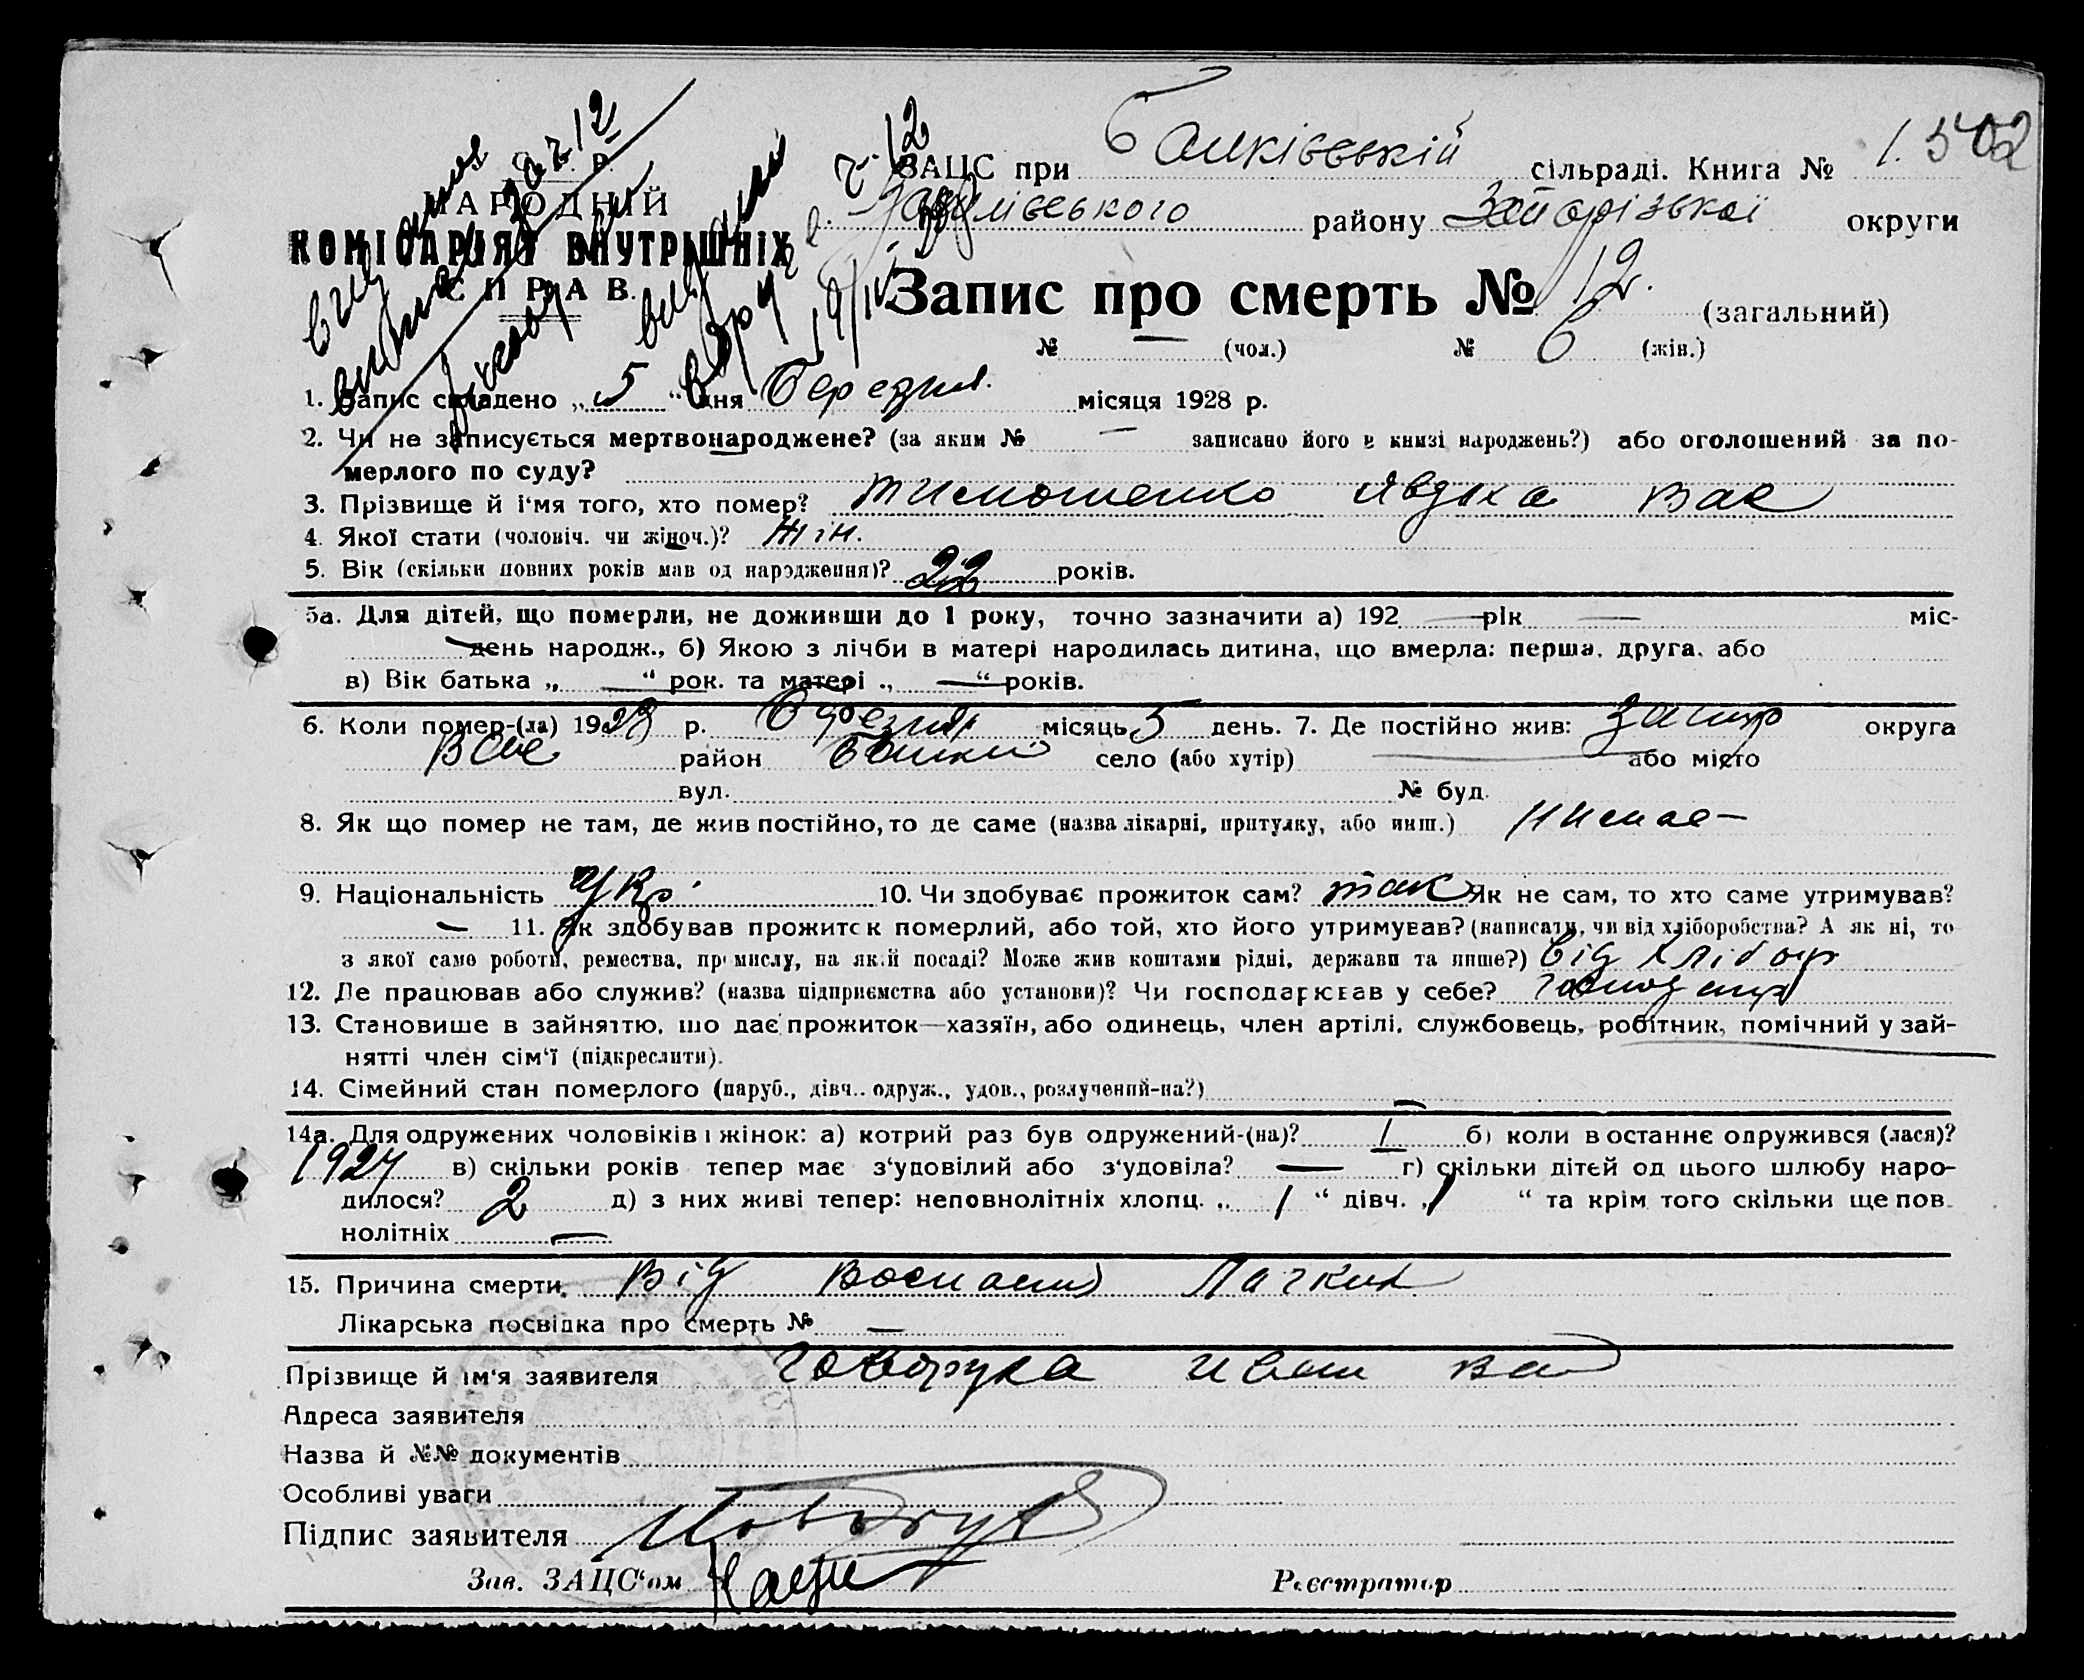 У. С. Р. Р.
НАРОДНІЙ
КОМІСАРІЯТ ВНУТРІШНІХ
СПРАВ.
ЗАЦС при Балківській сільраді. Книга № 1. 502
Василівського району Запорізької округи
Запис про смерть № 12. (загальний)
№ — (чол.) № 6 (жін.)
1. Запис складено „5“ дня березня місяця 1928 р.
2. Чи не записується мертвонароджене? (за яким № — записано його в книзі народжень?) або оголошений за по-
мерлого по суду?
3. Прізвище й і'мя того, хто помер? Тимошенко Явдоха Вас
4. Якої стати (чоловіч. чи жіноч.)? Жін.
5. Вік (скільки повних років мав од народження)? 22 років.
5а. Для дітей, що померли, не доживши до 1 року, точно зазначити а) 192 — рік — міс-
— день народж., б) Якою з лічби в матері народилась дитина, що вмерла: перша, друга, або
в) Вік батька „ — “ рок. та матері „ — “ років.
6. Коли помер-(ла) 1928 р. березня місяць 5 день. 7. Де постійно жив: Запор округа
Вас район Балки село (або хутір) — або місто
вул. № буд.
8. Як що помер не там, де жив постійно, то де саме (назва лікарні, притулку, або инш.) Немає —
9. Національність Укр. 10. Чи здобуває прожиток сам? так Як не сам, то хто саме утримував?
— 11. Як здобував прожиток померлий, або той, хто його утримував? (написати, чи від хліборобства? А як ні, то
з якої само роботи, ремества, промислу, на якій посаді? Може жив коштами рідні, держави та инше?) від хлібор
12. Де працював або служив? (назва підприємства або установи)? Чи господарював у себе?
13. Становище в зайняттю, що дає прожиток—хазяїн, або одинець, член артілі, службовець, робітник, помічний у зай-
нятті член сім'ї (підкреслити).
14. Сімейний стан померлого (паруб., дівч., одруж., удов., розлучений-на?) —
14а. Для одружених чоловіків і жінок: а) котрий раз був одружений-(на)? 1 б) коли в останнє одружився (лася)?
1924 в) скільки років тепер має з'удовілий або з'удовіла? — г) скільки дітей од цього шлюбу наро-
дилося? 2 д) з них живі тепер: неповнолітніх хлопц. „ 1 “ дівч. „ 1 “ та крім того скільки ще пов-
нолітніх —
15. Причина смерти від воспалення
Лікарська посвідка про смерть № —
Прізвище й ім'я заявителя Говоруха Иван Ва
Адреса заявителя
Назва й №№ документів
Особливі уваги
Підпис заявителя
Зав. ЗАЦС'ом
Реєстратор